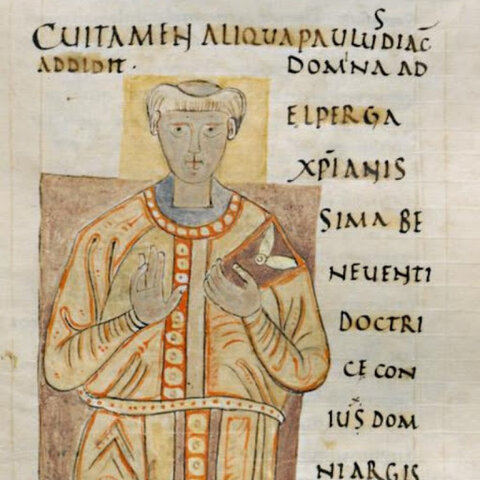 CUITAMEN ALIQUA PAULUS DIAC̄
ADDIDIT. DOMNA AD
ELPERGA
XP̄IANIS
SIMA BE
NEUENTI
DOCTRI
CE CON
IUS̄ DOM
NI ARGIS